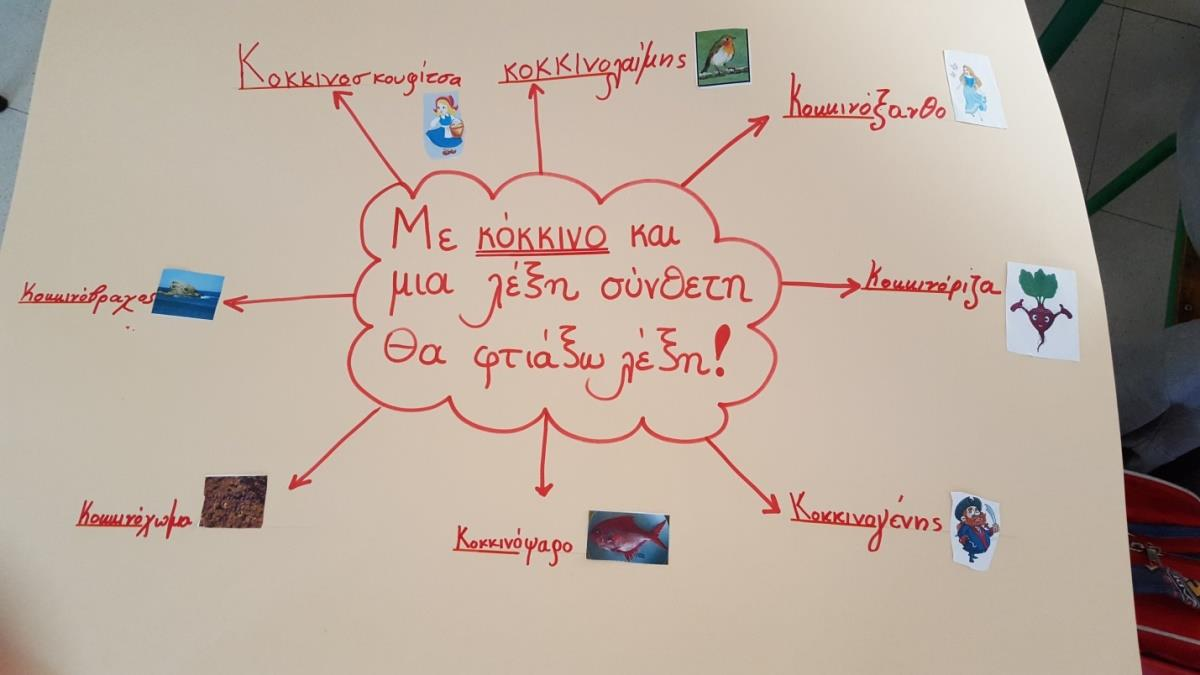 Κοκκινοσκουφίτσα
κοκκινολαίμης
Κοκκινόξανθο
Με κόκκινο και
μια λέξη σύνθετη
θα φτιάξω λέξη!
Κοκκινόβραχος
Κοκκινόριζα
Κοκκινόχωμα
Κοκκινόψαρο
Κοκκινογένης